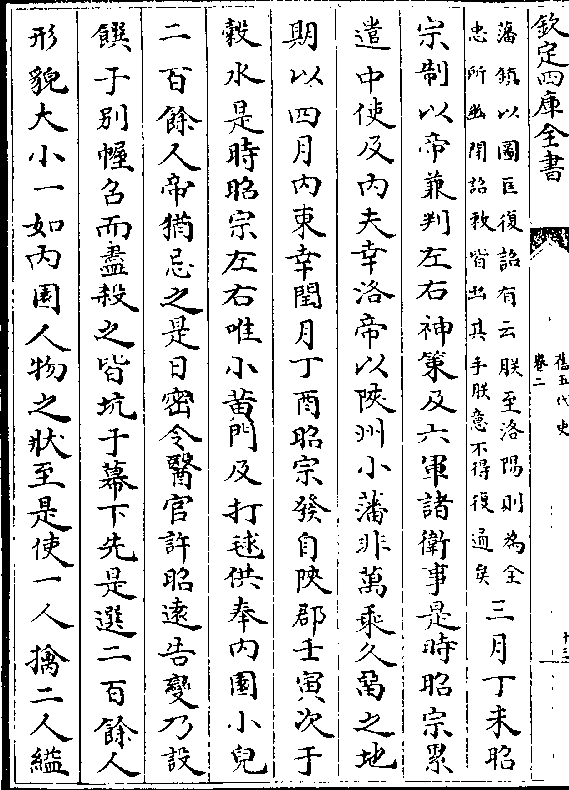 欽定四庫全書
舊五代史
卷二
藩鎮以圖匡復詔有云朕至洛陽則為全
忠所幽閉詔敕皆出其手朕意不得復通矣
三月丁未昭
宗制以帝兼判左右神策及六軍諸衛事是時昭宗累
遣中使及內夫幸洛帝以陝州小藩非萬乘久留之地
期以四月內東幸閏月丁酉昭宗發自陝郡壬寅次于
穀水是時昭宗左右唯小黄門及打毬供奉內園小兒
二百餘人帝猶忌之是日密令醫官許昭遠告變乃設
饌于别幄召而盡殺之皆坑于幕下先是選二百餘人
形貌大小一如內園人物之狀至是使一人擒二人縊